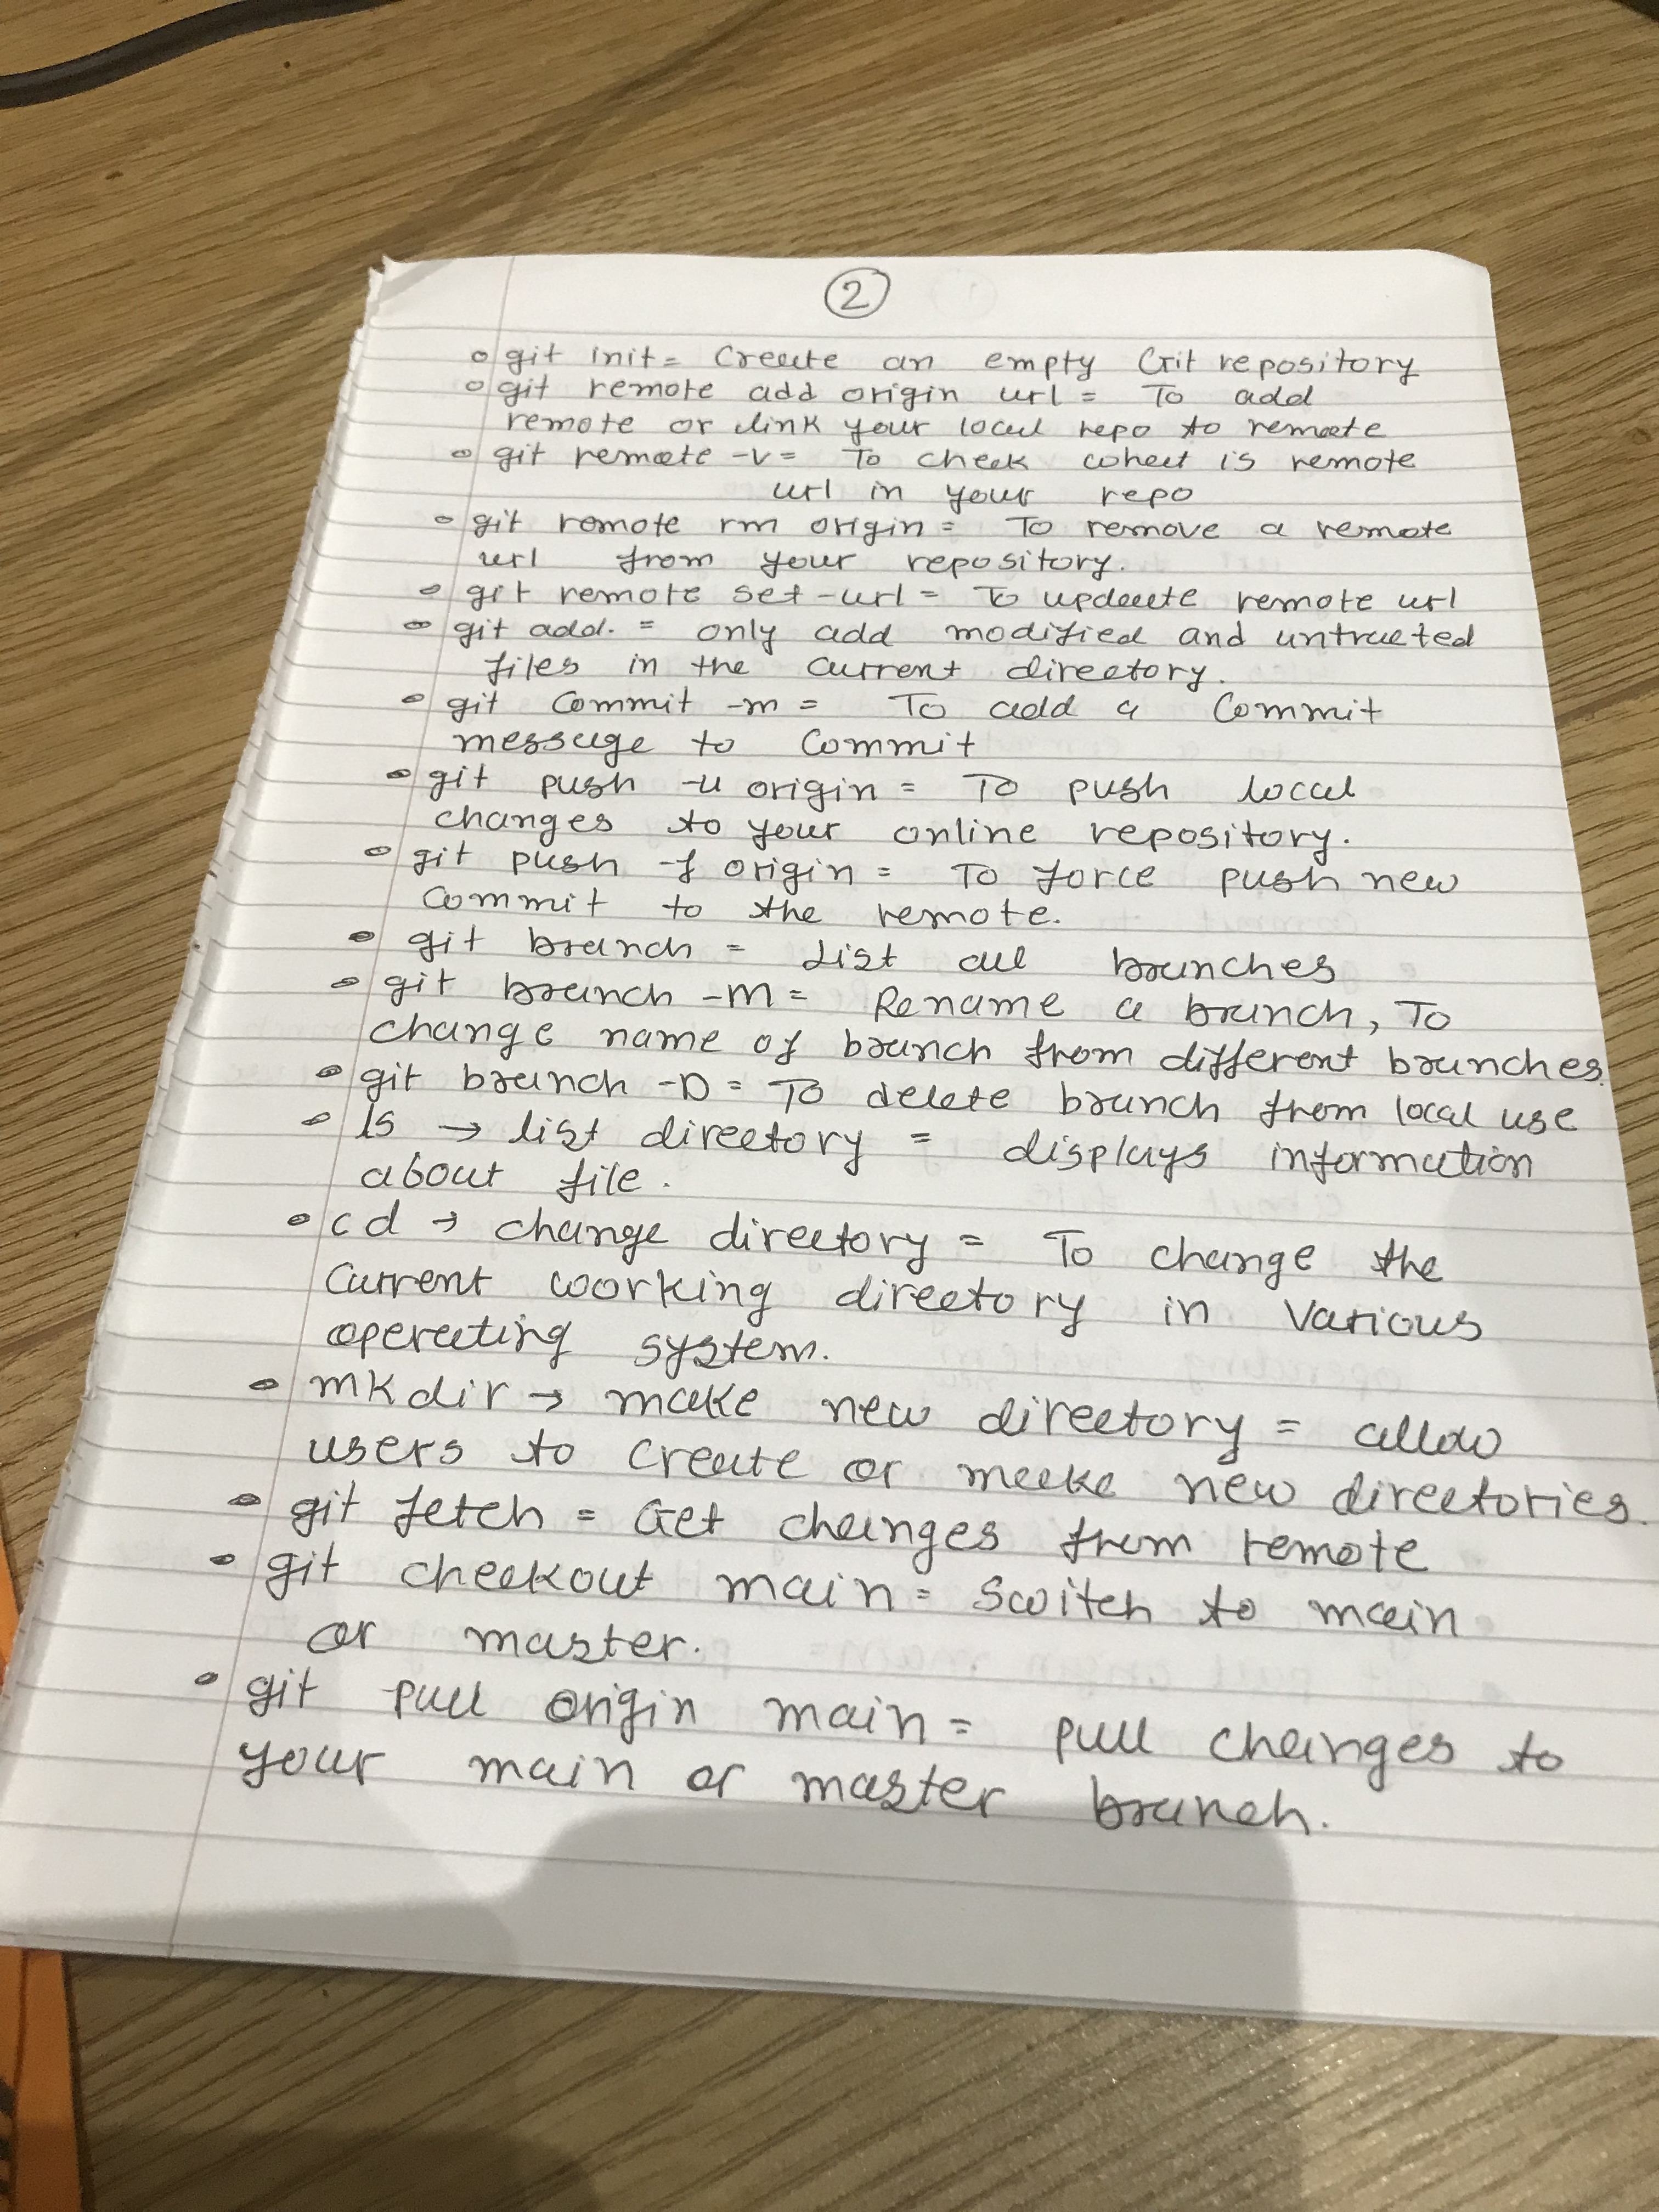 2
git init = Create an empty Git repository
git remote add origin url = To add
remote or link your local repo to remote
git remote -v = To check what is remote
url in your repo
git remote rm origin = To remove a remote
url from your repository.
git remote set-url = To update remote url
git add. = only add modified and untracted
files in the current directory.
git commit -m = To add a commit
message to commit
git push -u origin = To push local
changes to your online repository.
git push -f origin = To force push new
commit to the remote.
git branch = List all branches
git branch -M = Rename a branch, To
change name of branch from different branches.
git branch -D = To delete branch from local use
ls → list directory = displays information
about file.
cd → change directory = To change the
current working directory in various
operating system.
mkdir → make new directory = allow
users to create or make new directories.
git fetch = Get changes from remote
git checkout main = Switch to main
or master.
git pull origin main = pull changes to
your main or master branch.